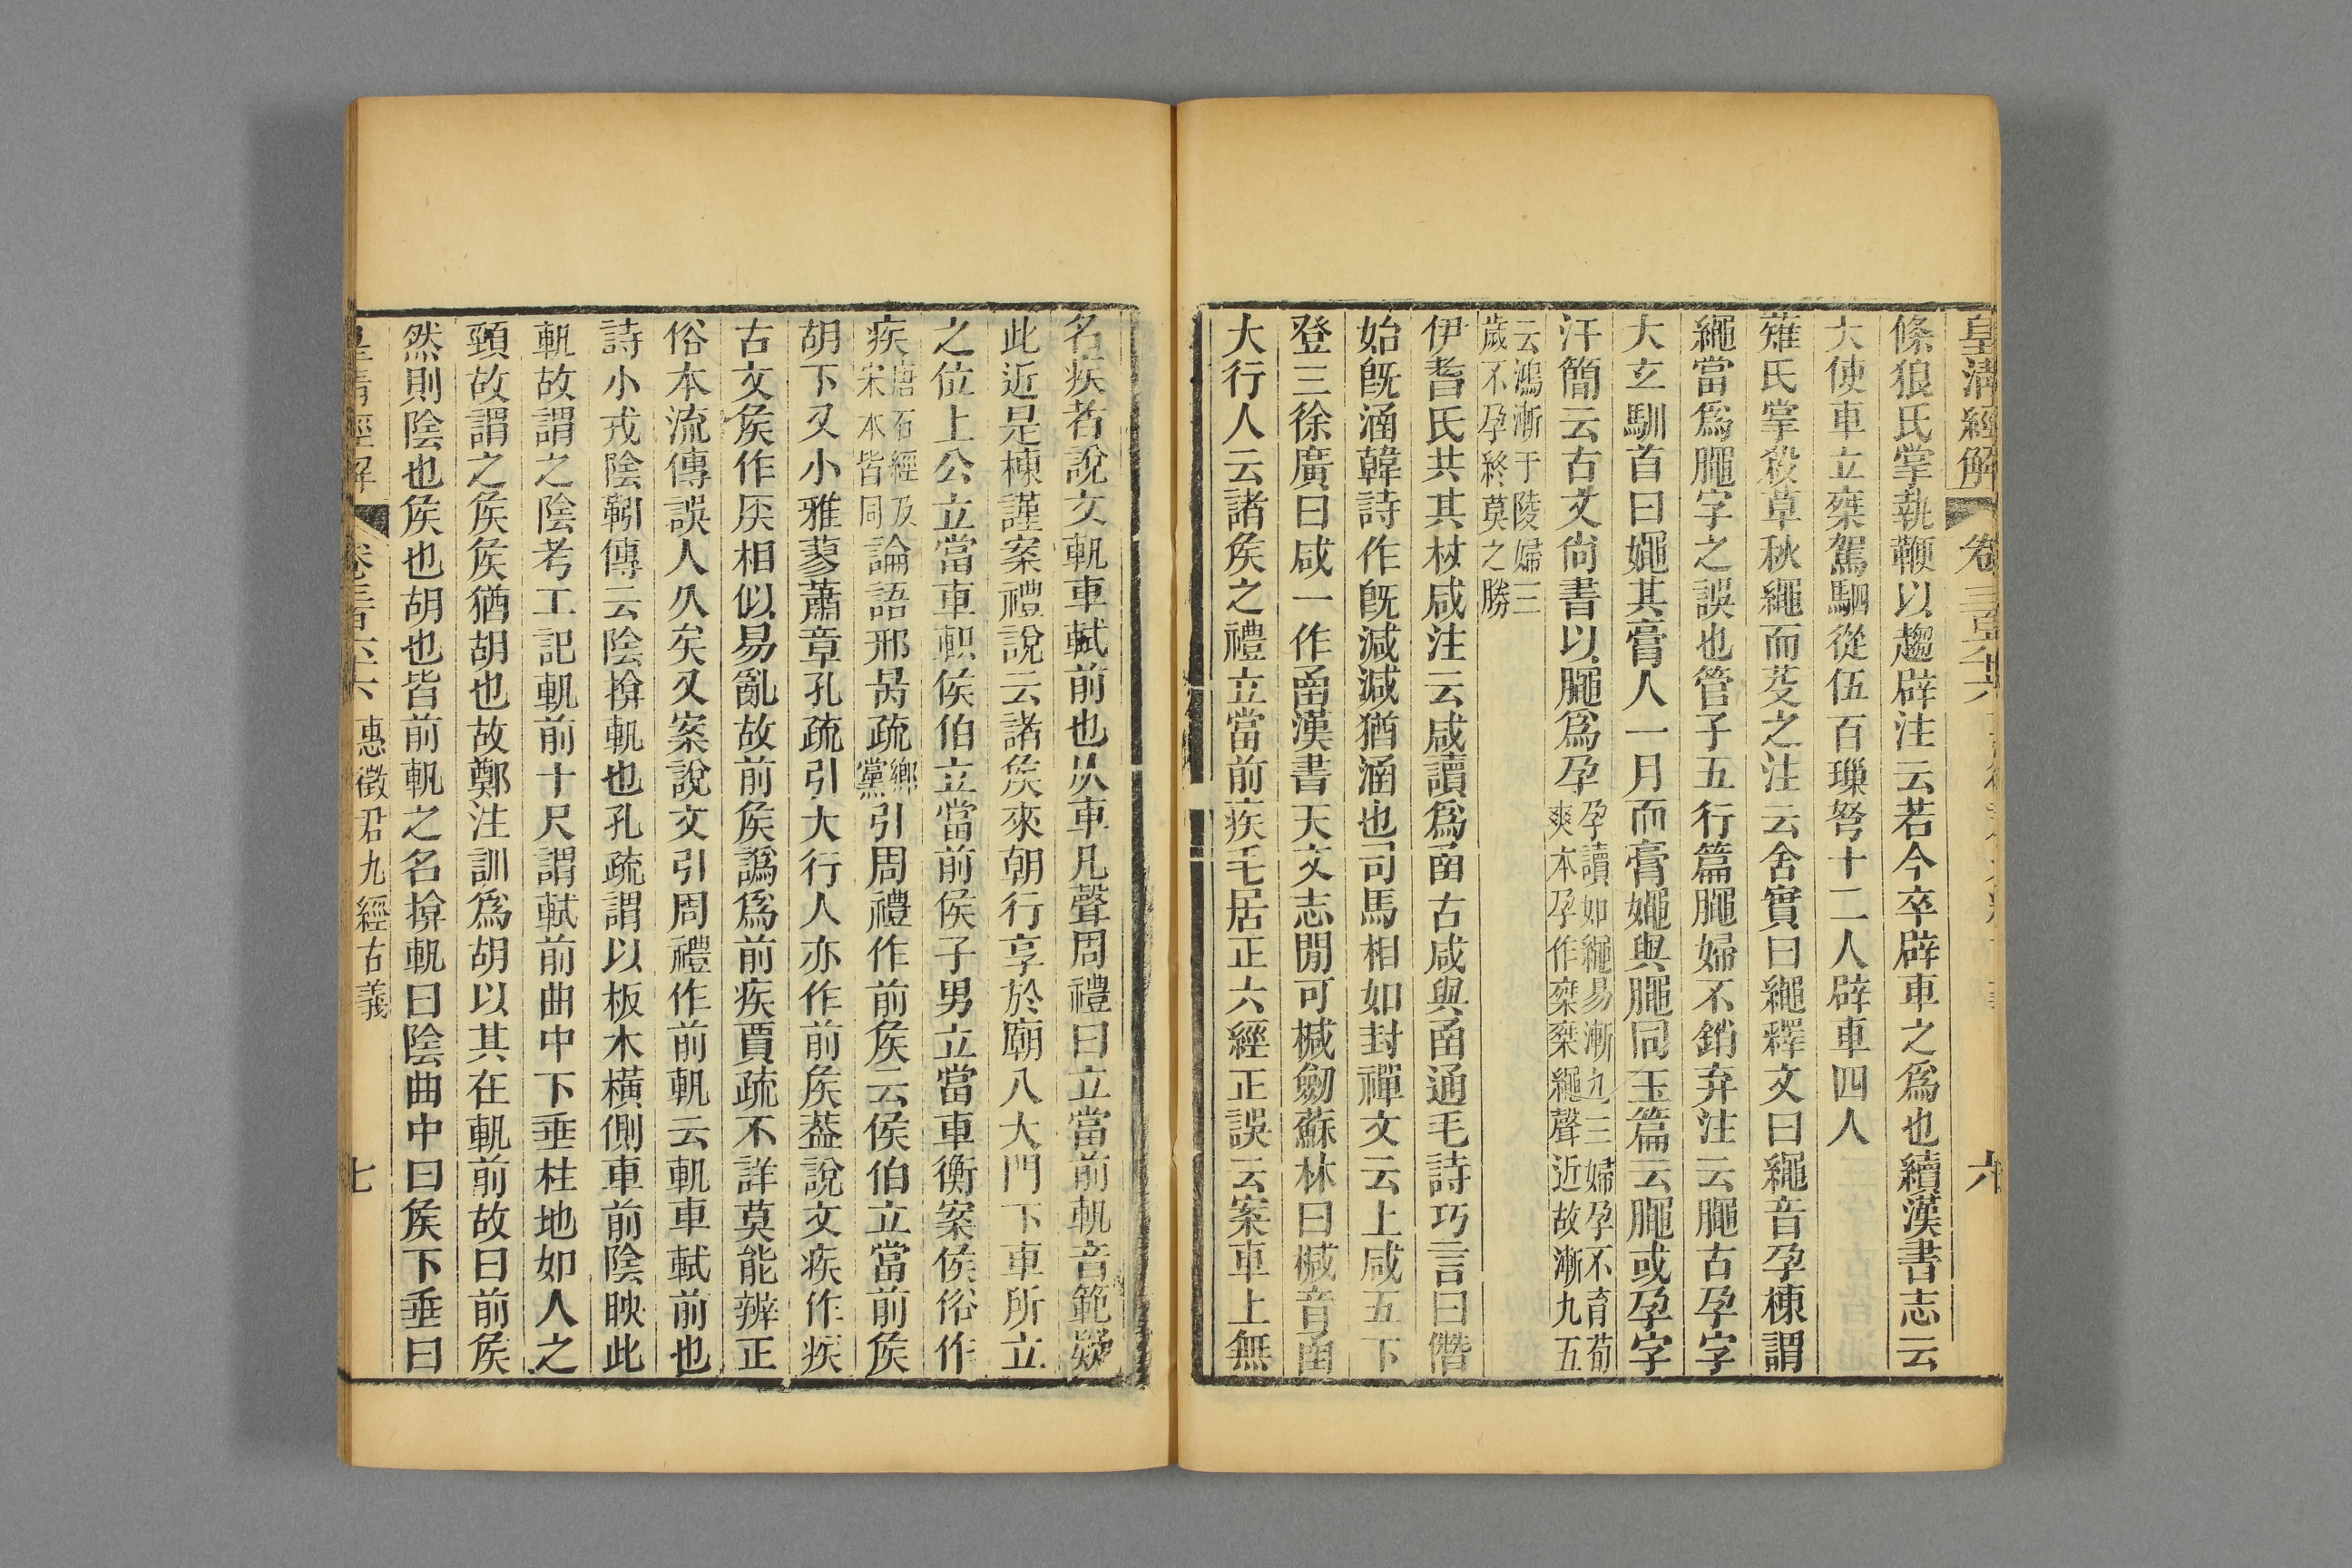 皇淸經解
卷三百六十六
六
條狼氏掌執鞭以趨辟注云若今卒辟車之爲也續漢書志云
大使車立椉駕駟從伍百璅弩十二人辟車四人
薙氏掌殺草秋繩而芟之注云含實曰繩釋文曰繩音孕棟謂
繩當爲䵴字之誤也管子五行篇䵴婦不銷弃注云䵴古孕字
大玄馴首曰嬎其膏人一月而膏嬎與䵴同玉篇云䵴或孕字
汗簡云古文尙書以䵴爲孕孕讀如繩易漸九三婦孕不育荀
爽本孕作椉椉繩聲近故漸九五
云鴻漸于陵婦三
歲不孕終莫之勝
伊耆氏共其杖咸注云咸讀爲函古咸與函通毛詩巧言曰僭
始旣涵韓詩作旣減減猶涵也司馬相如封禪文云上咸五下
登三徐廣曰咸一作函漢書天文志閒可椷劒蘇林曰椷音函
大行人云諸矦之禮立當前疾毛居正六經正誤云案車上無
名疾者說文軓車軾前也从車凡聲周禮曰立當前軓音範疑
此近是棟謹案禮說云諸矦來朝行享於廟八大門下車所立
之位上公立當車軹侯伯立當前侯子男立當車衡案侯俗作
疾唐石經及
宋本皆同論語邢昺疏鄉
黨引周禮作前矦云侯伯立當前矦
胡下又小雅蓼蕭章孔疏引大行人亦作前矦葢說文疾作疾
古文矦作𥎦相似易亂故前矦譌爲前疾賈疏不詳莫能辨正
俗本流傳誤人久矣又案說文引周禮作前軓云軓車軾前也
詩小戎陰靷傳云陰揜軓也孔疏謂以板木橫側車前陰映此
軓故謂之陰考工記軓前十尺謂軾前曲中下垂柱地如人之
頸故謂之矦矦猶胡也故鄭注訓爲胡以其在軓前故曰前矦
然則陰也矦也胡也皆前軓之名揜軓曰陰曲中曰矦下垂曰
皇淸經解
卷三百六十六
惠徵君九經古義
七